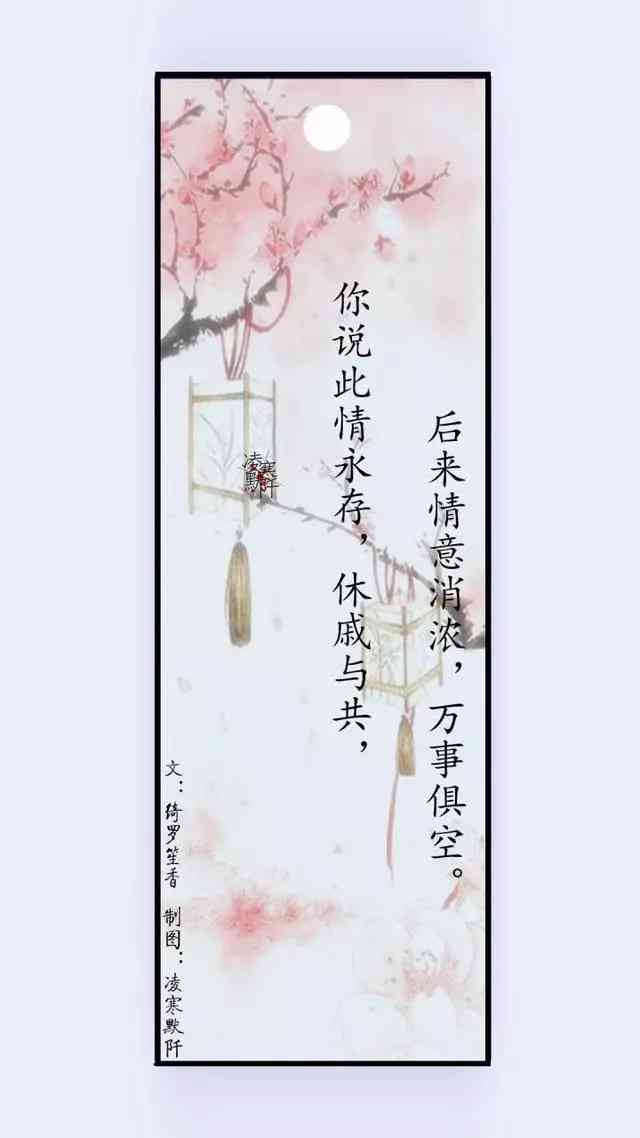 你说此情永存，休戚与共，
后来情意消浓，万事俱空。
凌寒
默阡
文：绮罗笙香 制图：凌寒默阡